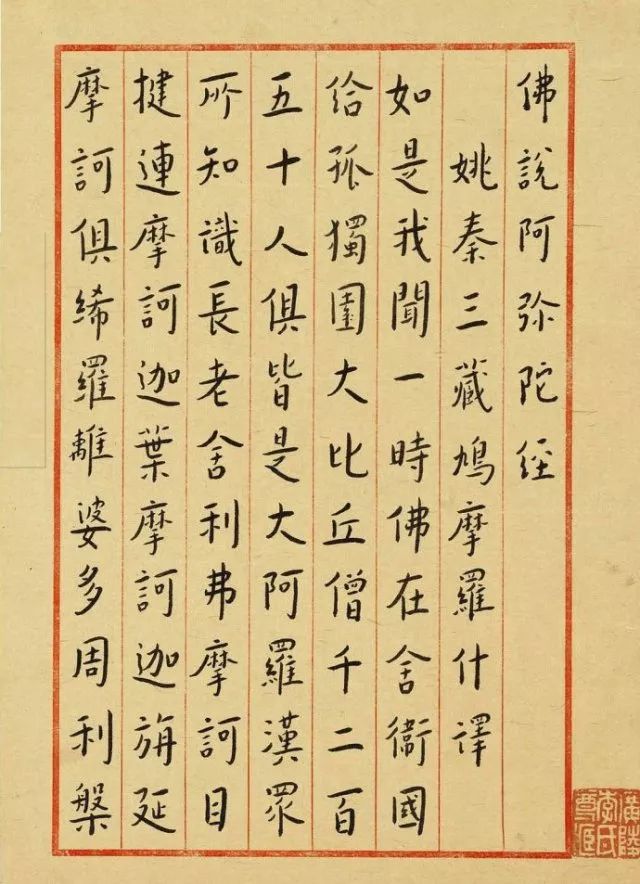 佛說阿弥陀経
姚秦三藏鳩摩羅什譯
如是我聞一時佛在舍衞國
給孤獨園大比丘僧千二百
五十人俱皆是大阿羅漢眾
所知識長老舍利弗摩訶目
揵連摩訶迦葉摩訶迦旃延
摩訶俱絺羅離婆多周利槃